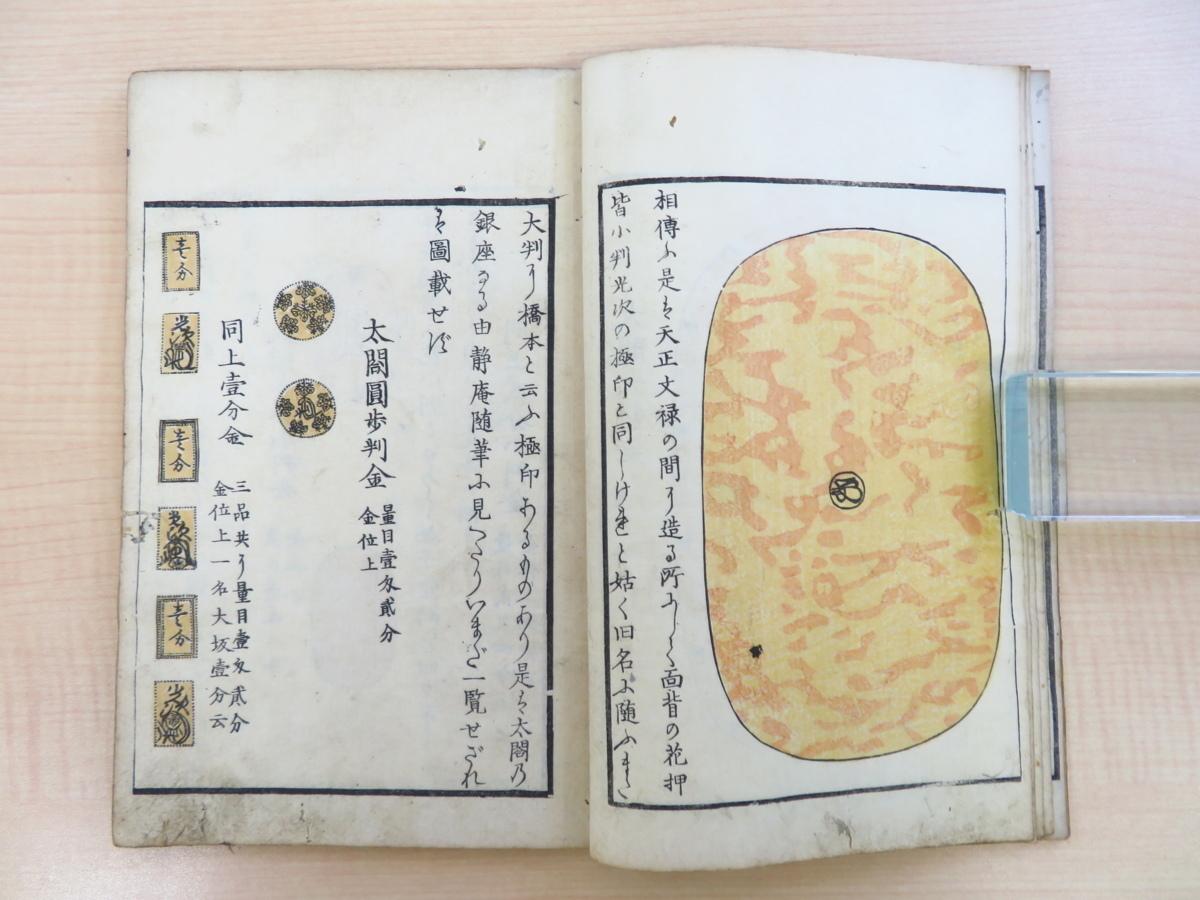 相傳ふ是は天正文禄の間に造る所にして面背の花押
皆小判光次の極印と同しけれと姑く旧名に随ふまた
大判に橋本と云ふ極印あるものあり是は太閤乃
銀座なる由静庵随筆に見へたりいまだ一覧せざれ
は圖載せず
太閤圓歩判金
量目壹匁貳分
金位上
同上壹分金
三品共に量目壹匁貳分
金位上一名大坂壹分云
壱分
光次
壱分
光次
壱分
光次